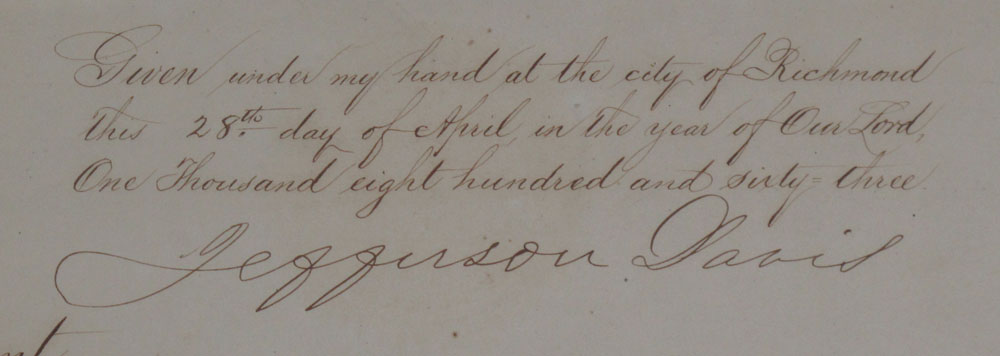 Given under my hand at the city of Richmond
this 28th day of April, in the year of Our Lord,
One Thousand eight hundred and sixty=three.
Jefferson Davis